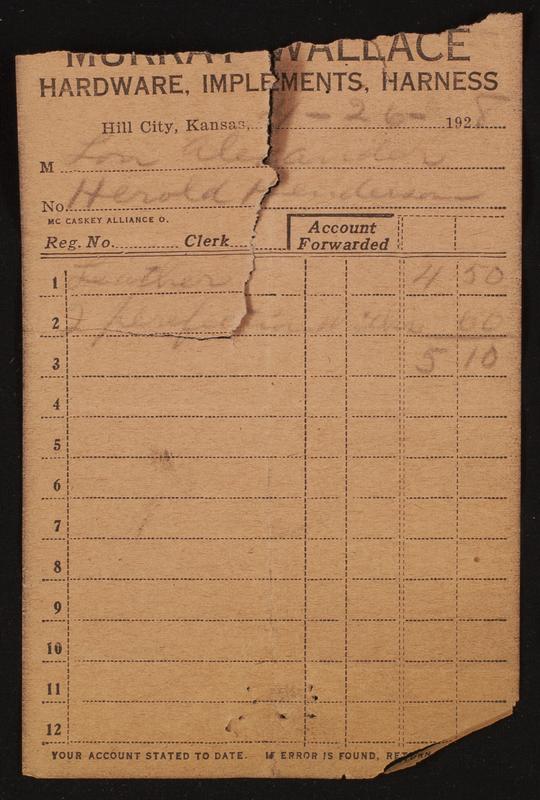 MURRAY WALLACE
HARDWARE, IMPLEMENTS, HARNESS
Hill City, Kansas, 4-26- 1928
M Lon Alexander
No. Herold Henderson
MC CASKEY ALLIANCE O.
Reg. No. Clerk
Account
Forwarded
1 Leather 4 50
2 2 60
3 5 10
4
5
6
7
8
9
10
11
12
YOUR ACCOUNT STATED TO DATE. IF ERROR IS FOUND, RETURN